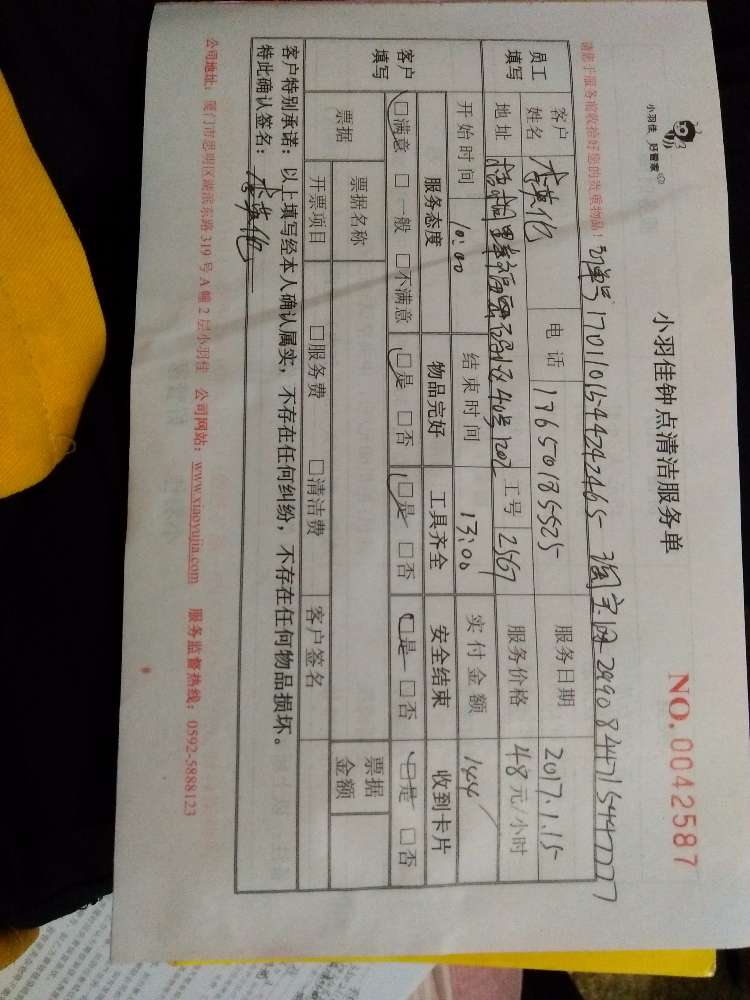 小羽佳 好管家
小羽佳钟点清洁服务单
NO. 0042587
请您于服务前收捡好您的贵重物品! 订单号 1701101544242465 淘宝网 2990844715447777
员工填写
客户姓名 电话 13650185525 服务日期 2017.1.15
地址 工号 2567 服务价格 48 元/小时
开始时间 10:00 结束时间 13:00 实付金额 144
客户填写
服务态度 物品完好 工具齐全 安全结束 收到卡片
□满意 □一般 □不满意 □是 □否 □是 □否 □是 □否 □是 □否
票据 票据名称 票据金额
开票项目 □服务费 □清洁费 客户签名
客户特别承诺:以上填写经本人确认属实,不存在任何纠纷,不存在任何物品损坏。
特此确认签名:
公司地址:厦门市思明区湖滨东路 319 号 A 幢 2 层小羽佳 公司网站:www.xiaoyujia.com 服务监督热线:0592-5888123